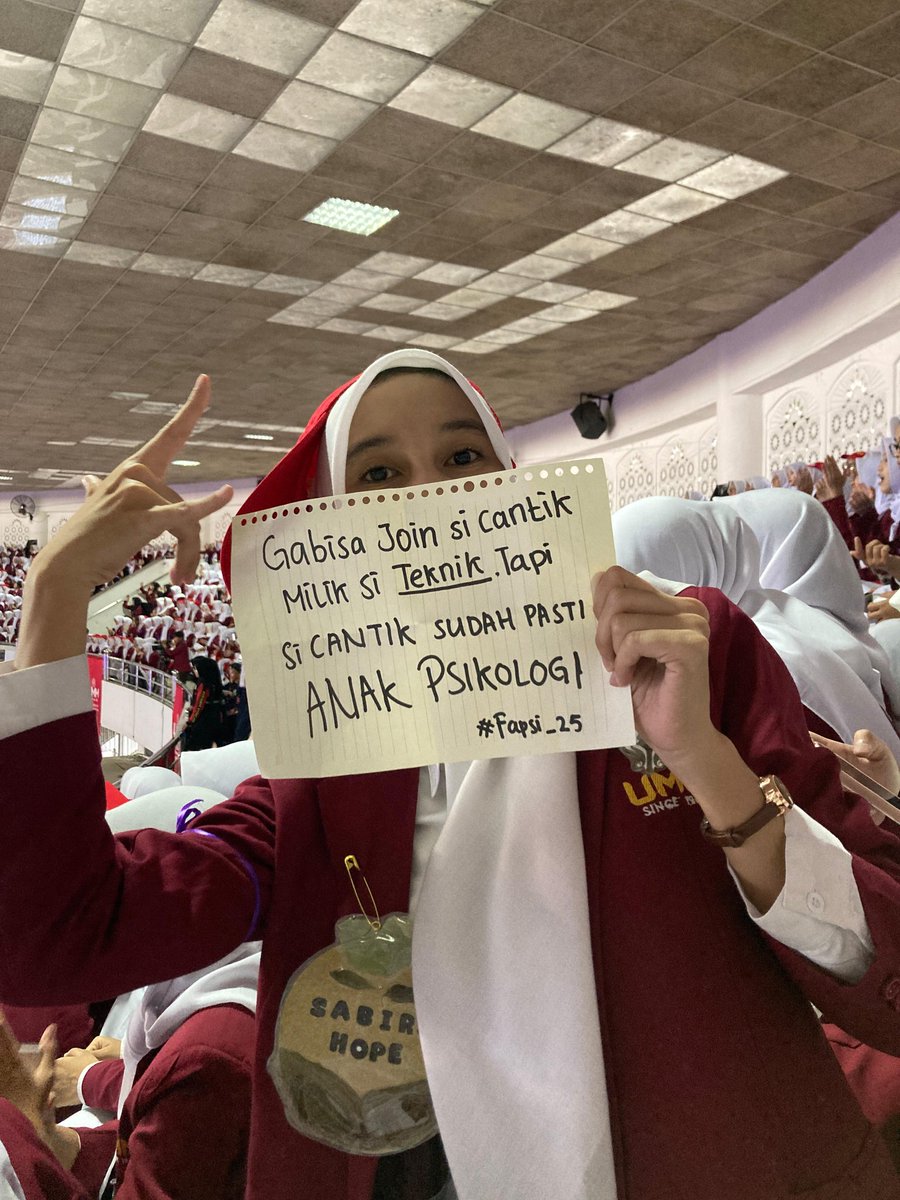 Gabisa Join si Cantik
Milik si Teknik. Tapi
si CANTIK SUDAH PASTI
ANAK PSIKOLOGI
#Fapsi_25
SABIR
HOPE